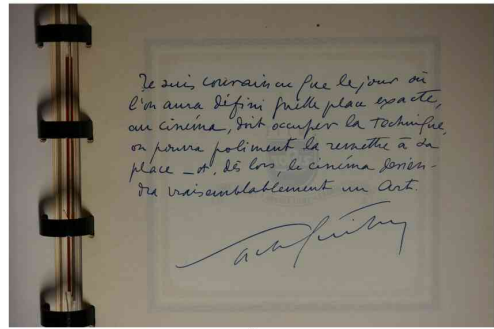 Je suis convaincu que le jour où
l'on aura défini quelle place exacte,
au cinéma, doit occuper la Technique,
on pourra poliment la remettre à sa
place _ et, dès lors le cinéma devien-
dra vraisemblablement un Art.
Sacha Guitry